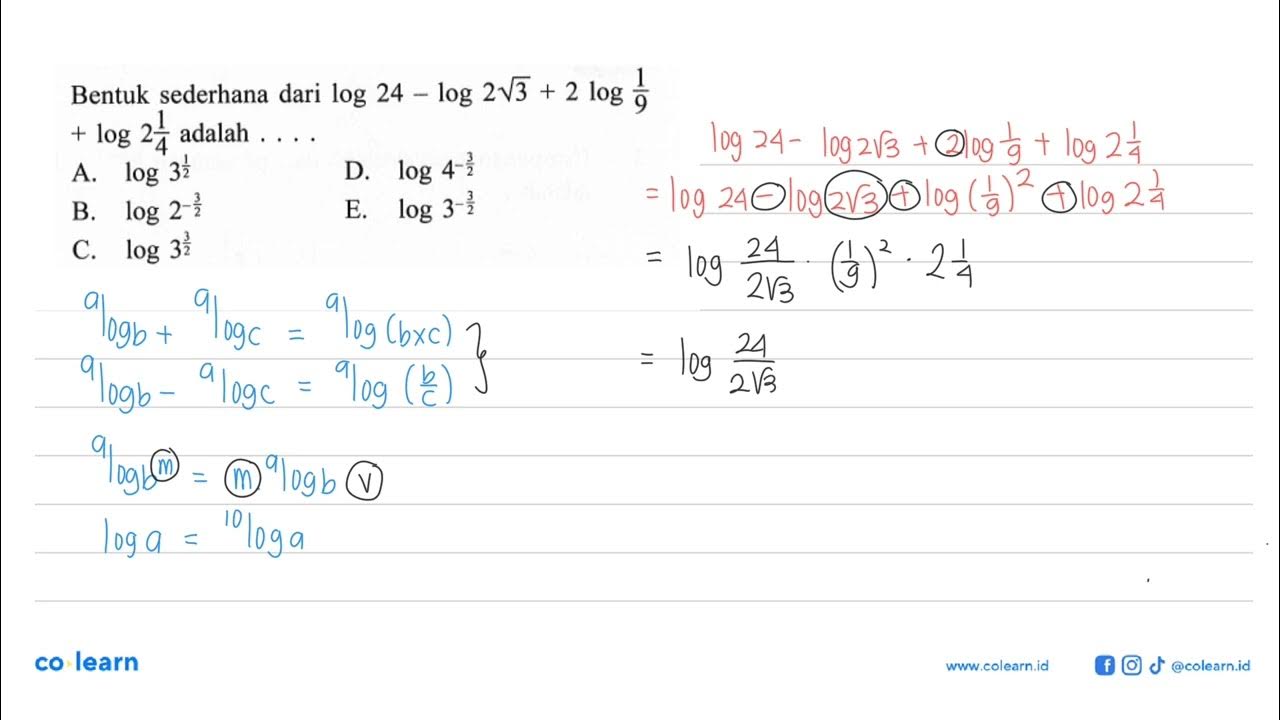 Bentuk sederhana dari log 24 − log 2√3 + 2 log 1/9
+ log 2 1/4 adalah . . . .
A. log 3^(1/2)
D. log 4^(−3/2)
B. log 2^(−3/2)
E. log 3^(−3/2)
C. log 3^(3/2)
log 24 − log 2√3 + 2 log 1/9 + log 2 1/4
= log 24 − log 2√3 + log (1/9)² + log 2 1/4
= log 24/(2√3) · (1/9)² · 2 1/4
= log 24/(2√3)
ᵃlog b + ᵃlog c = ᵃlog (b×c) }
ᵃlog b − ᵃlog c = ᵃlog (b/c)
ᵃlog b^m = m ᵃlog b v
log a = ¹⁰log a
co learn
www.colearn.id
@colearn.id